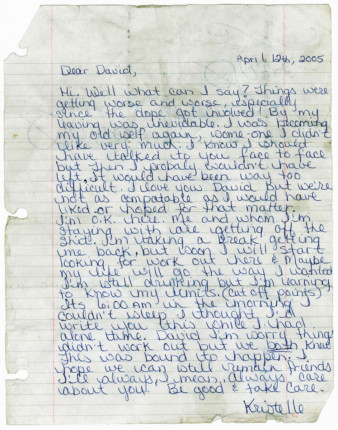 April 12th, 2005
Dear David,
Hi. Well what can I say? Things were
getting worse and worse, especially
since the dope got involved! By my
leaving was inevidable. I was becoming
my old self again, some-one I didn't
like very much. I know I should
have talked to you face to face
but then I probaly wouldn't have
left. It would have been way too
difficult. I love you David but we're
not as compatable as I would have
liked or hoped for that matter.
I'm O.K. here. Me and whom I'm
staying with are getting off the
shit. I'm taking a break, getting
me back, but soon I will start
looking for work out here & Maybe
my life will go the way I wanted
I'm still drinking but I'm learning
to know my limits. (cut off points)
Its 6:00 AM in the morning I
couldn't sleep I thought I'd
write you this while I had
alone time. David I'm sorry things
didn't work out but we both knew
this was bound to happen. I
hope we can still remain friends
I'll always, I mean, always care
about you. Be good & take care.
Kristelle